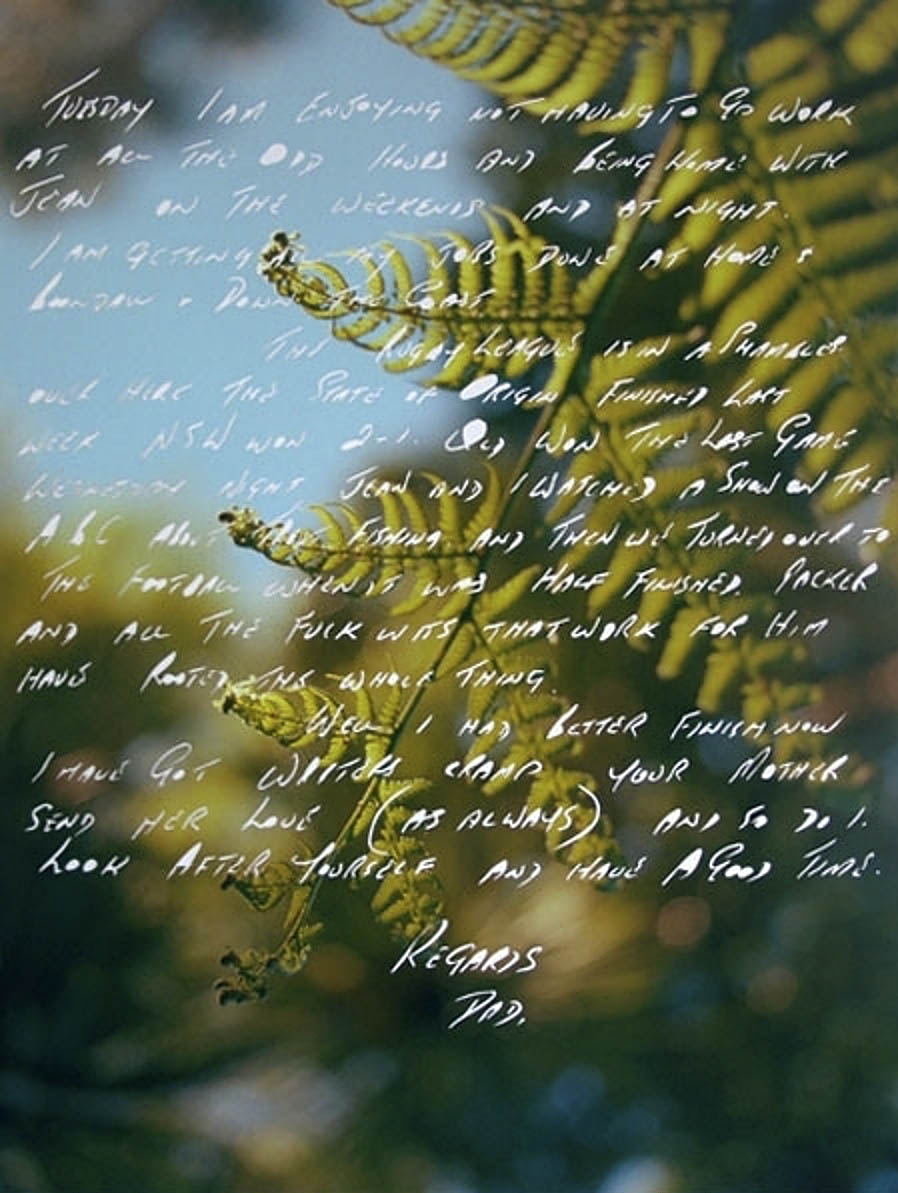 TUESDAY I AM ENJOYING NOT HAVING TO GO WORK
AT ALL THE ODD HOURS AND BEING HOME WITH
JEAN ON THE WEEKENDS AND AT NIGHT.
I AM GETTING ALL MY JOBS DONE AT HOME &
DOWN THE COAST
THE RUGBY LEAGUE IS IN A SHAMBLES
OVER HERE THE STATE OF ORIGIN FINISHED LAST
WEEK NSW WON 2-1. QLD WON THE LAST GAME
WEDNESDAY NIGHT JEAN AND I WATCHED A SHOW ON THE
ABC ABOUT FISHING AND THEN WE TURNED OVER TO
THE FOOTBALL WHEN IT WAS HALF FINISHED. PACKER
AND ALL THE FUCK WITS THAT WORK FOR HIM
HAVE ROOTED THE WHOLE THING.
WELL I HAD BETTER FINISH NOW
I HAVE GOT WRITERS CRAMP YOUR MOTHER
SEND HER LOVE (AS ALWAYS) AND SO DO I.
LOOK AFTER YOURSELF AND HAVE A GOOD TIME.
REGARDS
DAD.